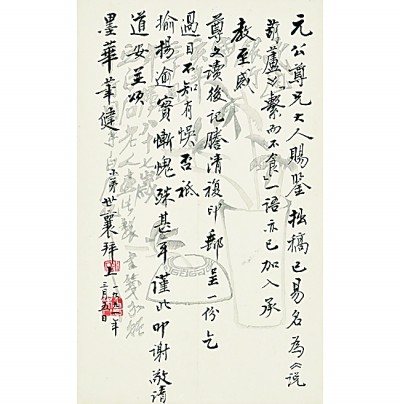 元公尊兄大人賜鑒拙稿已易名為《說
葫蘆》“繫而不食”一語亦已加入承
教至感
尊文讀後記謄清複印郵呈一份乞
過目不知有悞否祗
揄揚逾實慚愧殊甚耳謹此叩謝敬請
道安並頌
墨華筆健
弟世襄拜上
一九九一年
三月五日